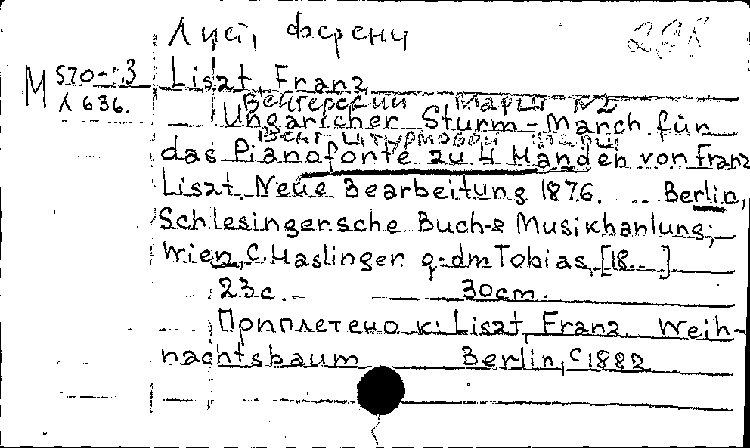 Лист, Ференц
М 570-13
Л 636.
Liszt, Franz
Венгерский Марш N2
Ungaricher Sturm-March für
Венг штурмовой марш
das Pianoforte zu 4 Händen von Franz
Liszt. Neue Bearbeitung 1876. Berlin,
Schlesinger.sche Buch-& Musikhanlung;
Wien, C. Haslinger q-dm Tobias, [18..]
23с. 30cm.
Приплетено к: Liszt, Franz Weih-
nachtsbaum Berlin, c 1882